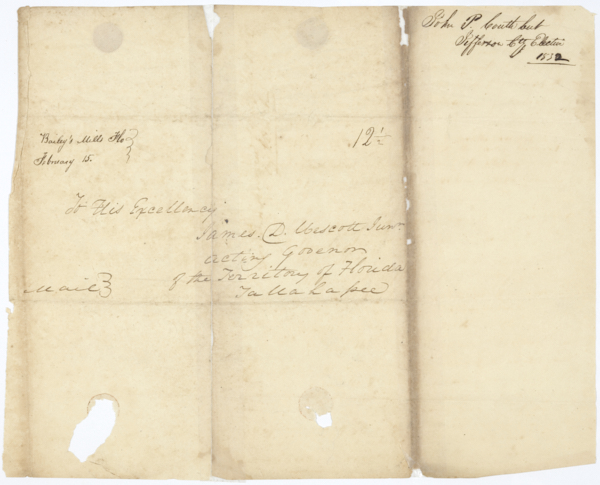 John P. Booth
Jefferson Cty Election
1832
Bailey's Mills Flo
February 15.
12½
To His Excellency
James. D. Wescott Junr.
acting Govenor
of the Territory of Florida
Tallahasee
Mail